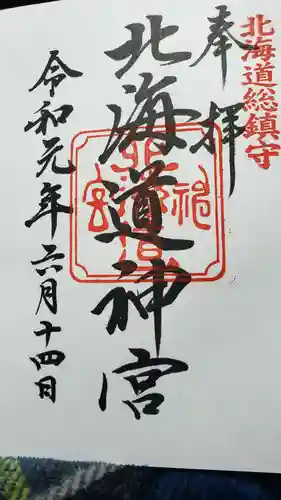 北海道総鎮守
奉拝
北海道神宮
北海道神宮
令和元年六月十四日